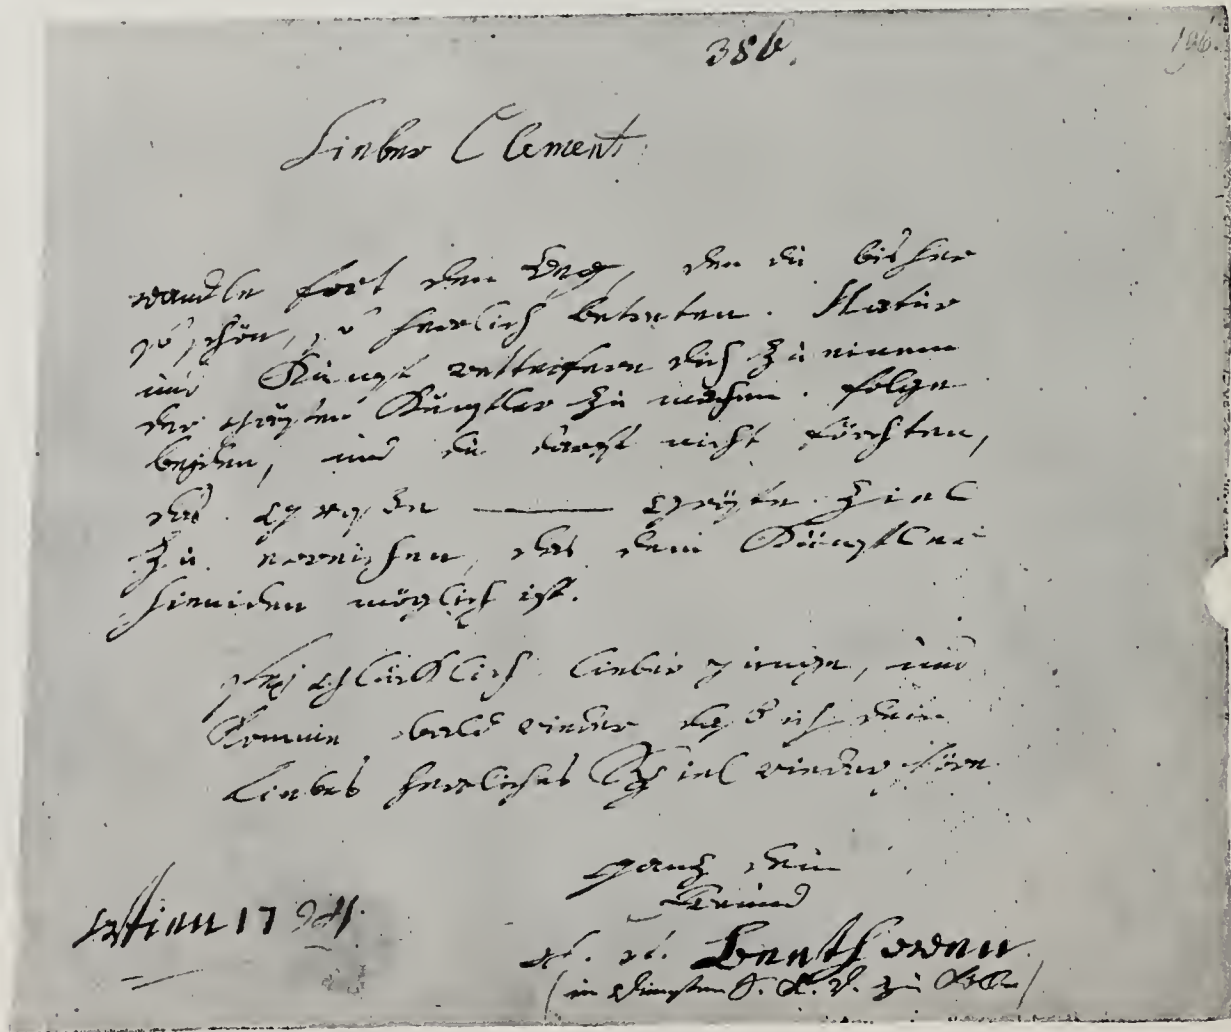 386.
196.
Lieber Clement
wandle fort den Weg, den du bisher
so schön, so herrlich betreten. Natur
und Kunst wetteifern dich zu einem
der größten Künstler zu machen. folge
beyden, und du darfst nicht förchten,
das großen — größte Ziel
zu erreichen, das dem Künstler
hienieden möglich ist.
sey glücklich lieber junge, und
komme bald wieder daß ich dein
liebes herrliches Spiel wieder höre
ganz dein
Freund
L. v. Beethowen
(in diensten S. K. D. zu Köln)
Wien 1794